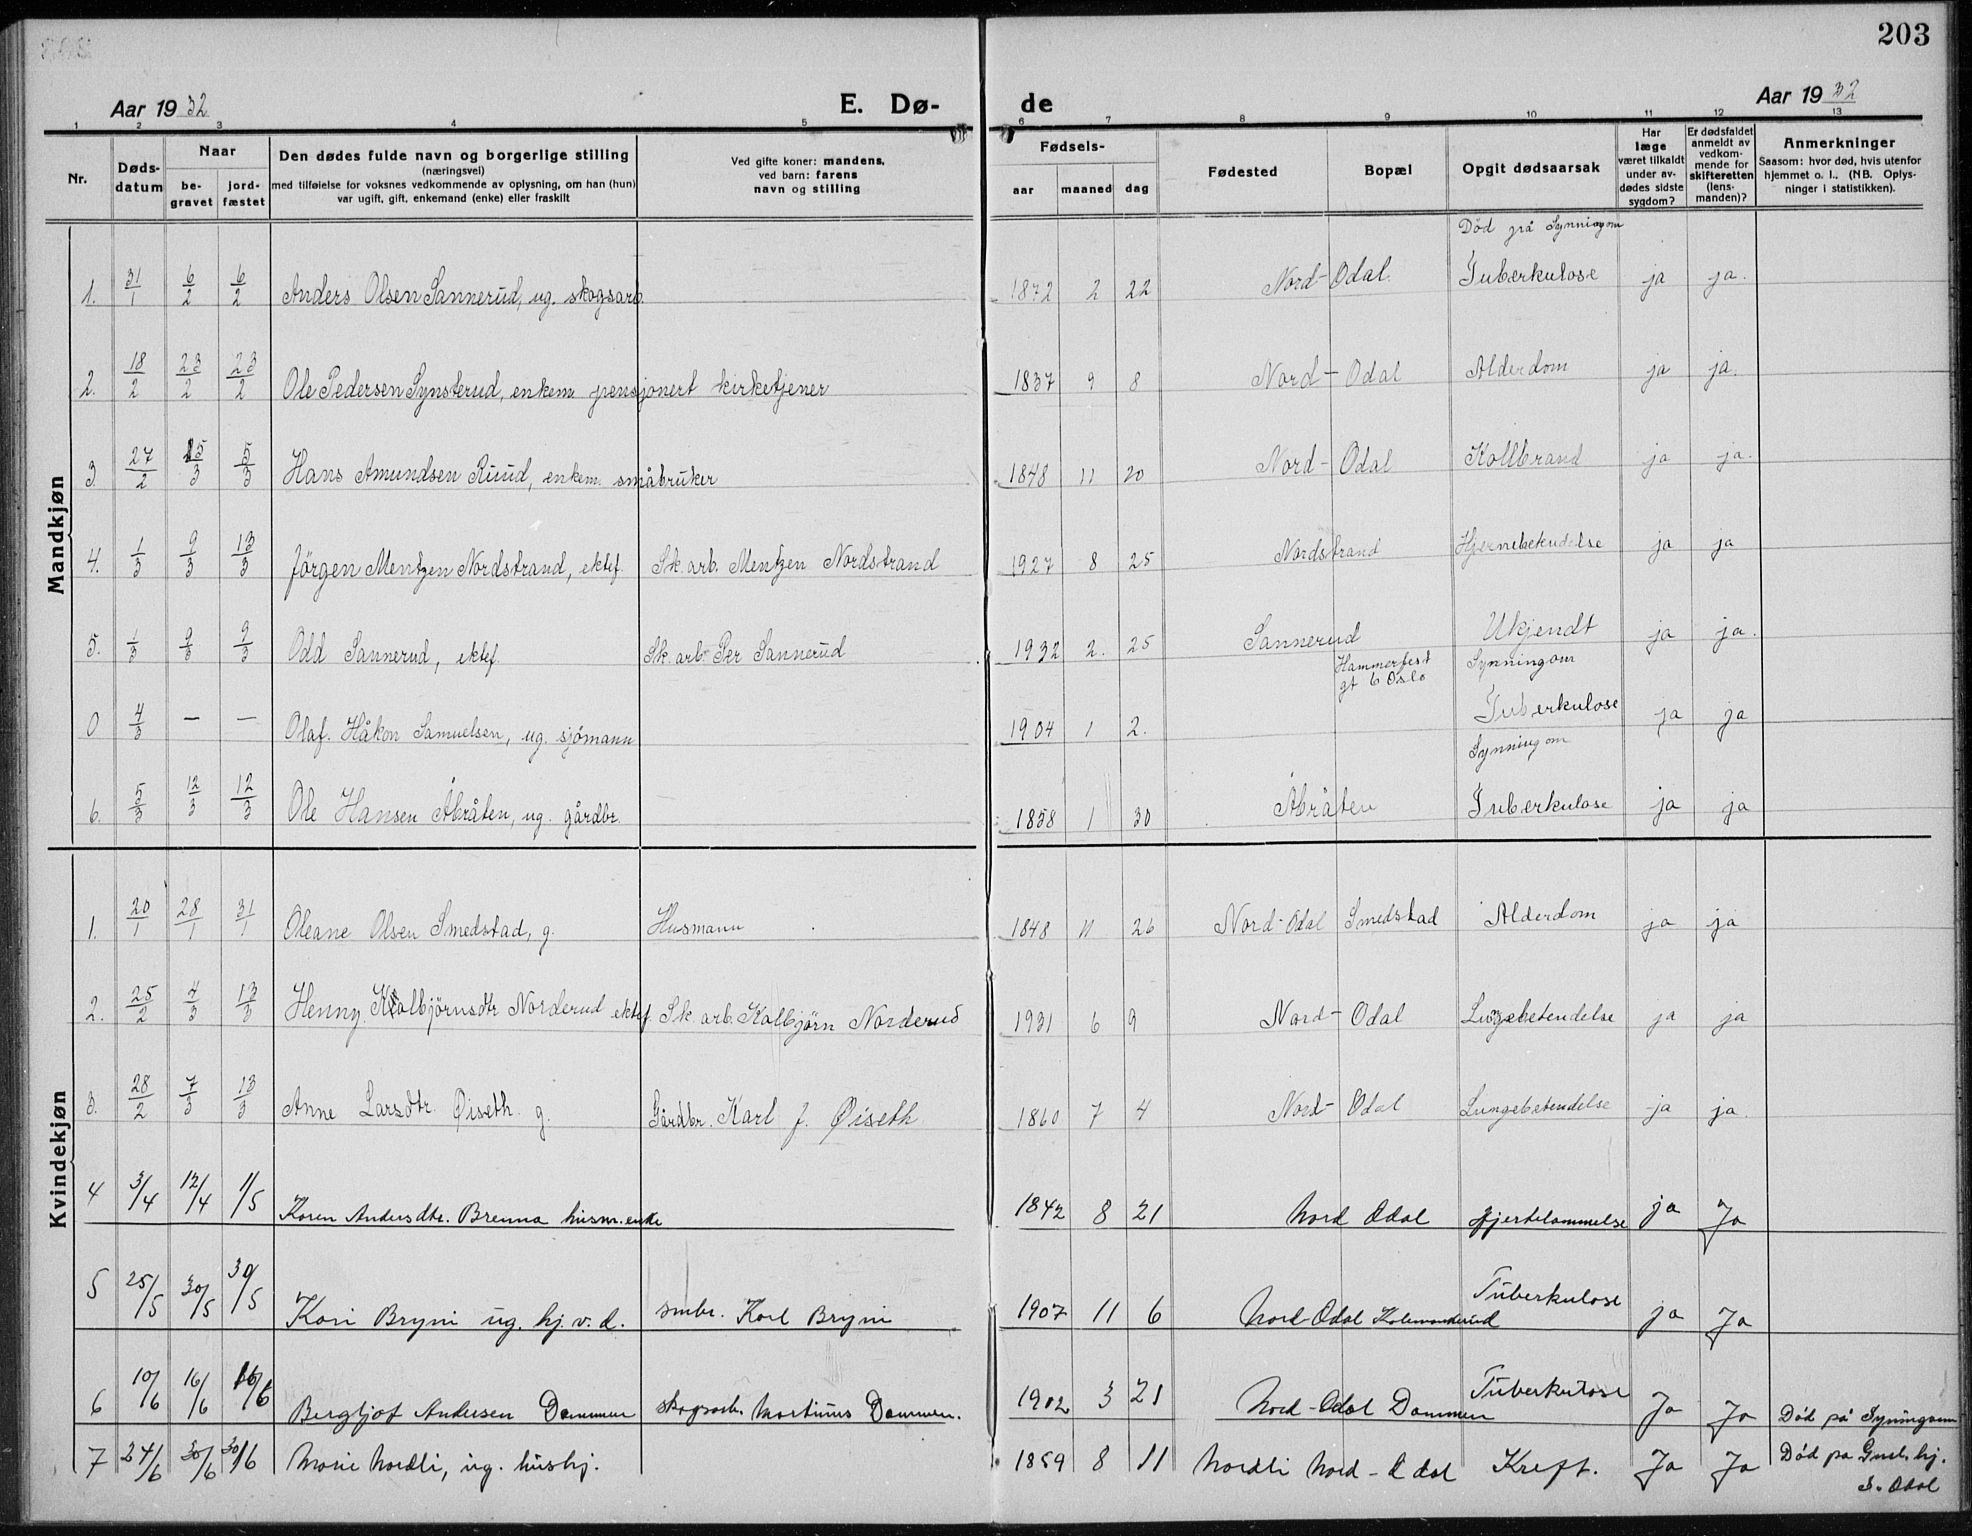 203
Aar 1932 E. Dø- de Aar 1932
1 2 3 4 5 6 7 8 9 10 11 12 13
Nr. Døds-datum Naar be-gravet jord-fæstet Den dødes fulde navn og borgerlige stilling (næringsvei) med tilføielse for voksnes vedkommende av oplysning, om han (hun) var ugift, gift, enkemand (enke) eller fraskilt Ved gifte koner: mandens, ved barn: farens navn og stilling Fødsels- aar maaned dag Fødested Bopæl Opgit dødsaarsak Har læge været tilkaldt under av-dødes sidste sygdom? Er dødsfaldet anmeldt av vedkom-mende for skifteretten (lens-manden)? Anmerkninger Saasom: hvor død, hvis utenfor hjemmet o. l., (NB. Oplys-ninger i statistikken).
Mandkjøn
Død på Synningom
1. 31/1 6/2 6/2 Anders Olsen Sannerud, ug. skogsarb. 1872 2 22 Nord-Odal. Tuberkulose ja ja.
2. 18/2 23/2 23/2 Ole Pedersen Synsterud, enkem. pensjonert kirketjener 1837 9 8 Nord-Odal Alderdom ja ja.
3 27/2 5/3 5/3 Hans Amundsen Ruud, enkem. småbruker 1848 11 20 Nord-Odal Kollbrand ja ja.
4. 1/3 9/3 13/3 Jörgen Mentzen Nordstrand, ektef. Sk. arb. Mentzen Nordstrand 1927 8 25 Nordstrand Hjernebetendelse ja ja
5. 1/3 9/3 9/3 Odd Sannerud, ektef. Sk. arb. Per Sannerud 1932 2. 25 Sannerud Ukjendt ja ja.
Hammerfest gt 6 Oslo Synningom
0 4/3 — — Olaf. Håkon Samuelsen, ug. sjömann 1904 1 2. Tuberkulose ja ja
Synningom
6. 5/3 12/3 12/3 Ole Hansen Åbråten, ug. gårdbr. 1858 1 30 Åbråten Tuberkulose ja ja
Kvindekjøn
1. 20/1 28/1 31/1 Oleane Olsen Smedstad, g. Husmann 1848 11 26 Nord-Odal Smedstad Alderdom ja ja
2. 25/2 4/3 13/3 Henny Kolbjörnsdtr Norderud ektef Sk. arb. Kolbjörn Norderud 1931 6 9 Nord-Odal Lungebetendelse ja ja
3. 28/2 7/3 13/3 Anne Larsdtr. Øiseth. g. Gårdbr. Karl J. Øiseth 1860 7 4 Nord-Odal Lungebetendelse ja ja.
4 3/4 12/4 1/5 Karen Andersdtr. Brenna husm. enke 1842 8 21 Nord Odal Hjertelammelse ja Ja
5 25/5 30/5 30/5 Kari Bryni ug. hj. v. d. smbr. Karl Bryni 1907 11 6 Nord-Odal Tuberkulose ja Ja
6 10/6 16/6 16/6 Bergljot Andersen Dammen skogsarb. Martinus Dammen. 1902 3 21 Nord-Odal Dammen Tuberkulose Ja Ja Död på Synningom
7 24/6 30/6 30/6 Marie Nordli, ug. hushj. 1859 8 11 Nordli Nord-Odal Kreft. Ja Ja Död på hj.
S. Odal